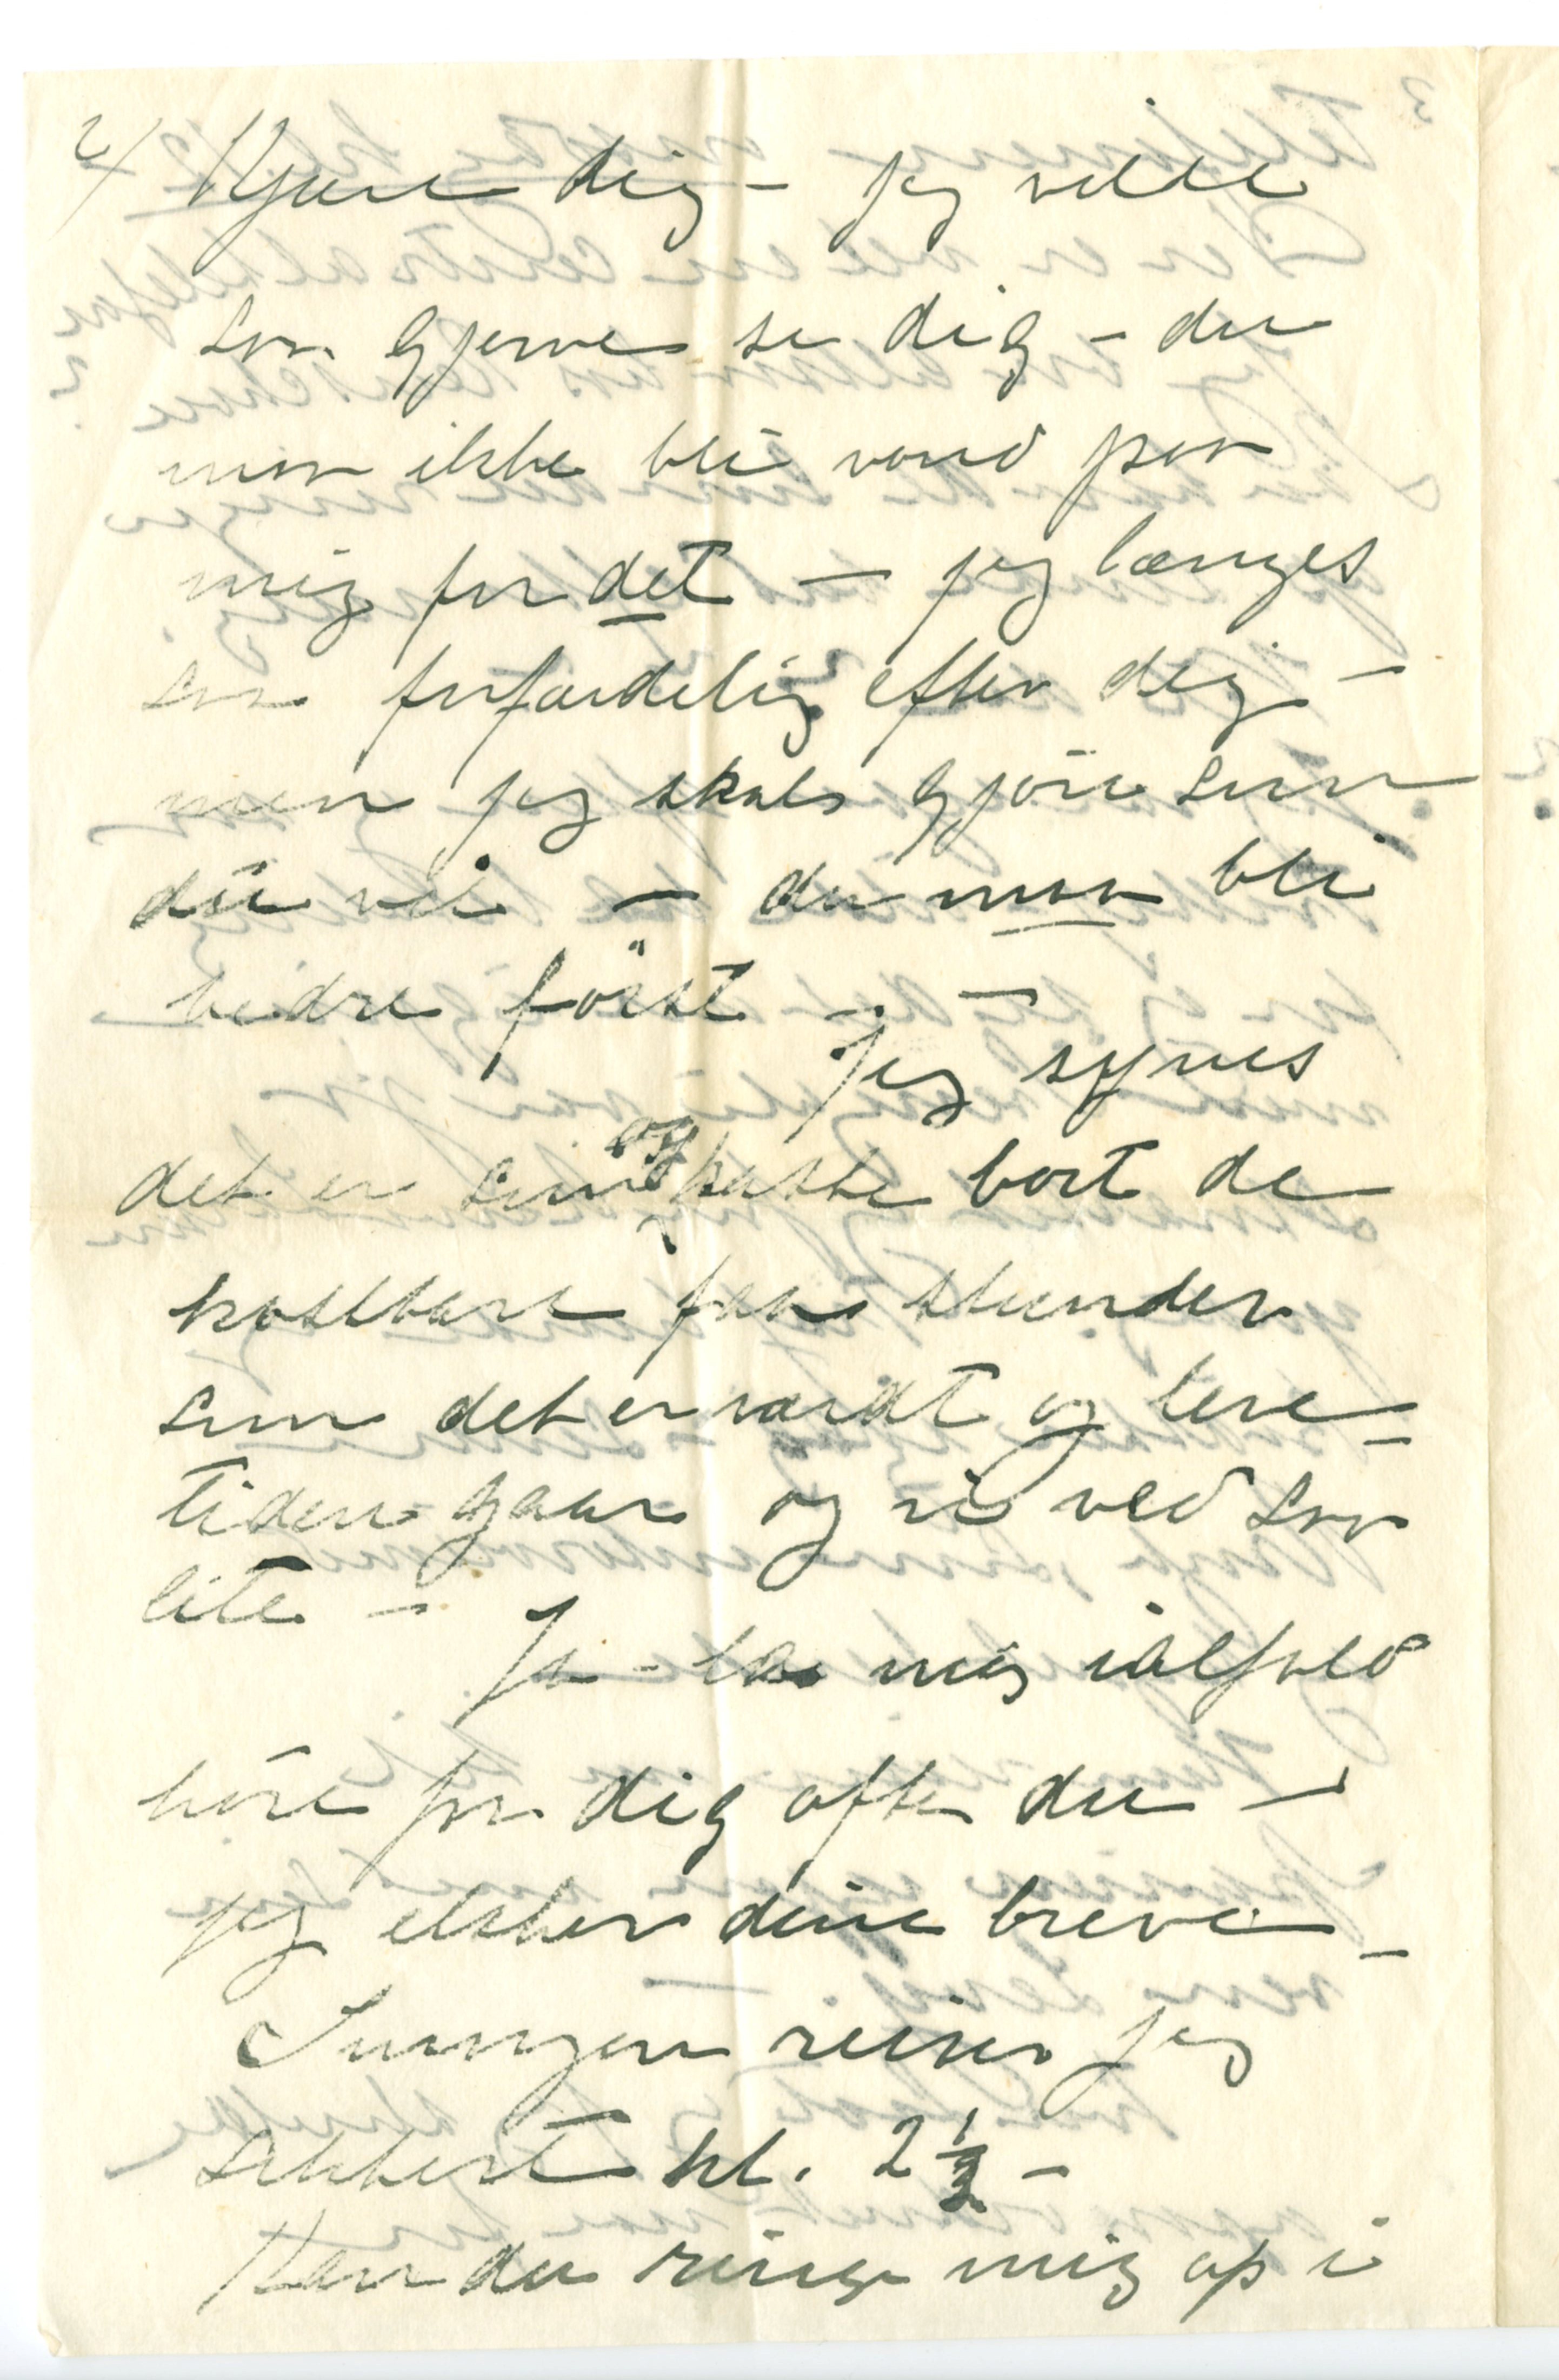 2/ Kjære dig – jeg vilde
saa gjerne se dig – du
maa ikke bli vond paa
mig for det – jeg længes
saa forfærdelig efter dig –
men jeg skal gjöre som
du vil – du maa bli
bedre först – –
Jeg synes
det er som og kaste bort de
kostbare faa stunder
som det er værdt og leve –
tiden gaar og vi ved saa
lite – 
Ja – la mig ialfald
höre fra dig ofte du –
jeg elsker dine breve –
Imorgen reiser jeg
sikkert kl. 2½ –
Kan du ringe mig op i